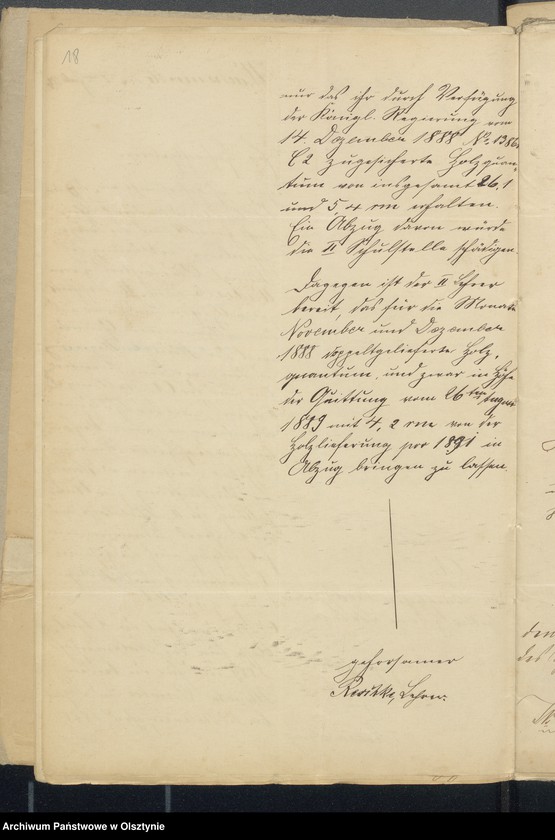 18
nur das ihr durch Verfügung
der Königl. Regierung vom
14. Dezember 1888 No. 1386
C2 zugesicherte Holzquan-
tum von insgesamt 26,1
und 5,4 rm erhalten.
Ein Abzug davon würde
die II Schulstelle schädigen.
Dagegen ist der II Lehrer
bereit, das für die Monate
November und Dezember
1888 doppeltgelieferte Holz-
quantum, und zwar in Höhe
der Quittung vom 26ten
1889 mit 4,2 rm von der
Holzlieferung pro 1891 in
Abzug bringen zu lassen.
gehorsamer
Lehrer.
Archiwum Państwowe w Olsztynie